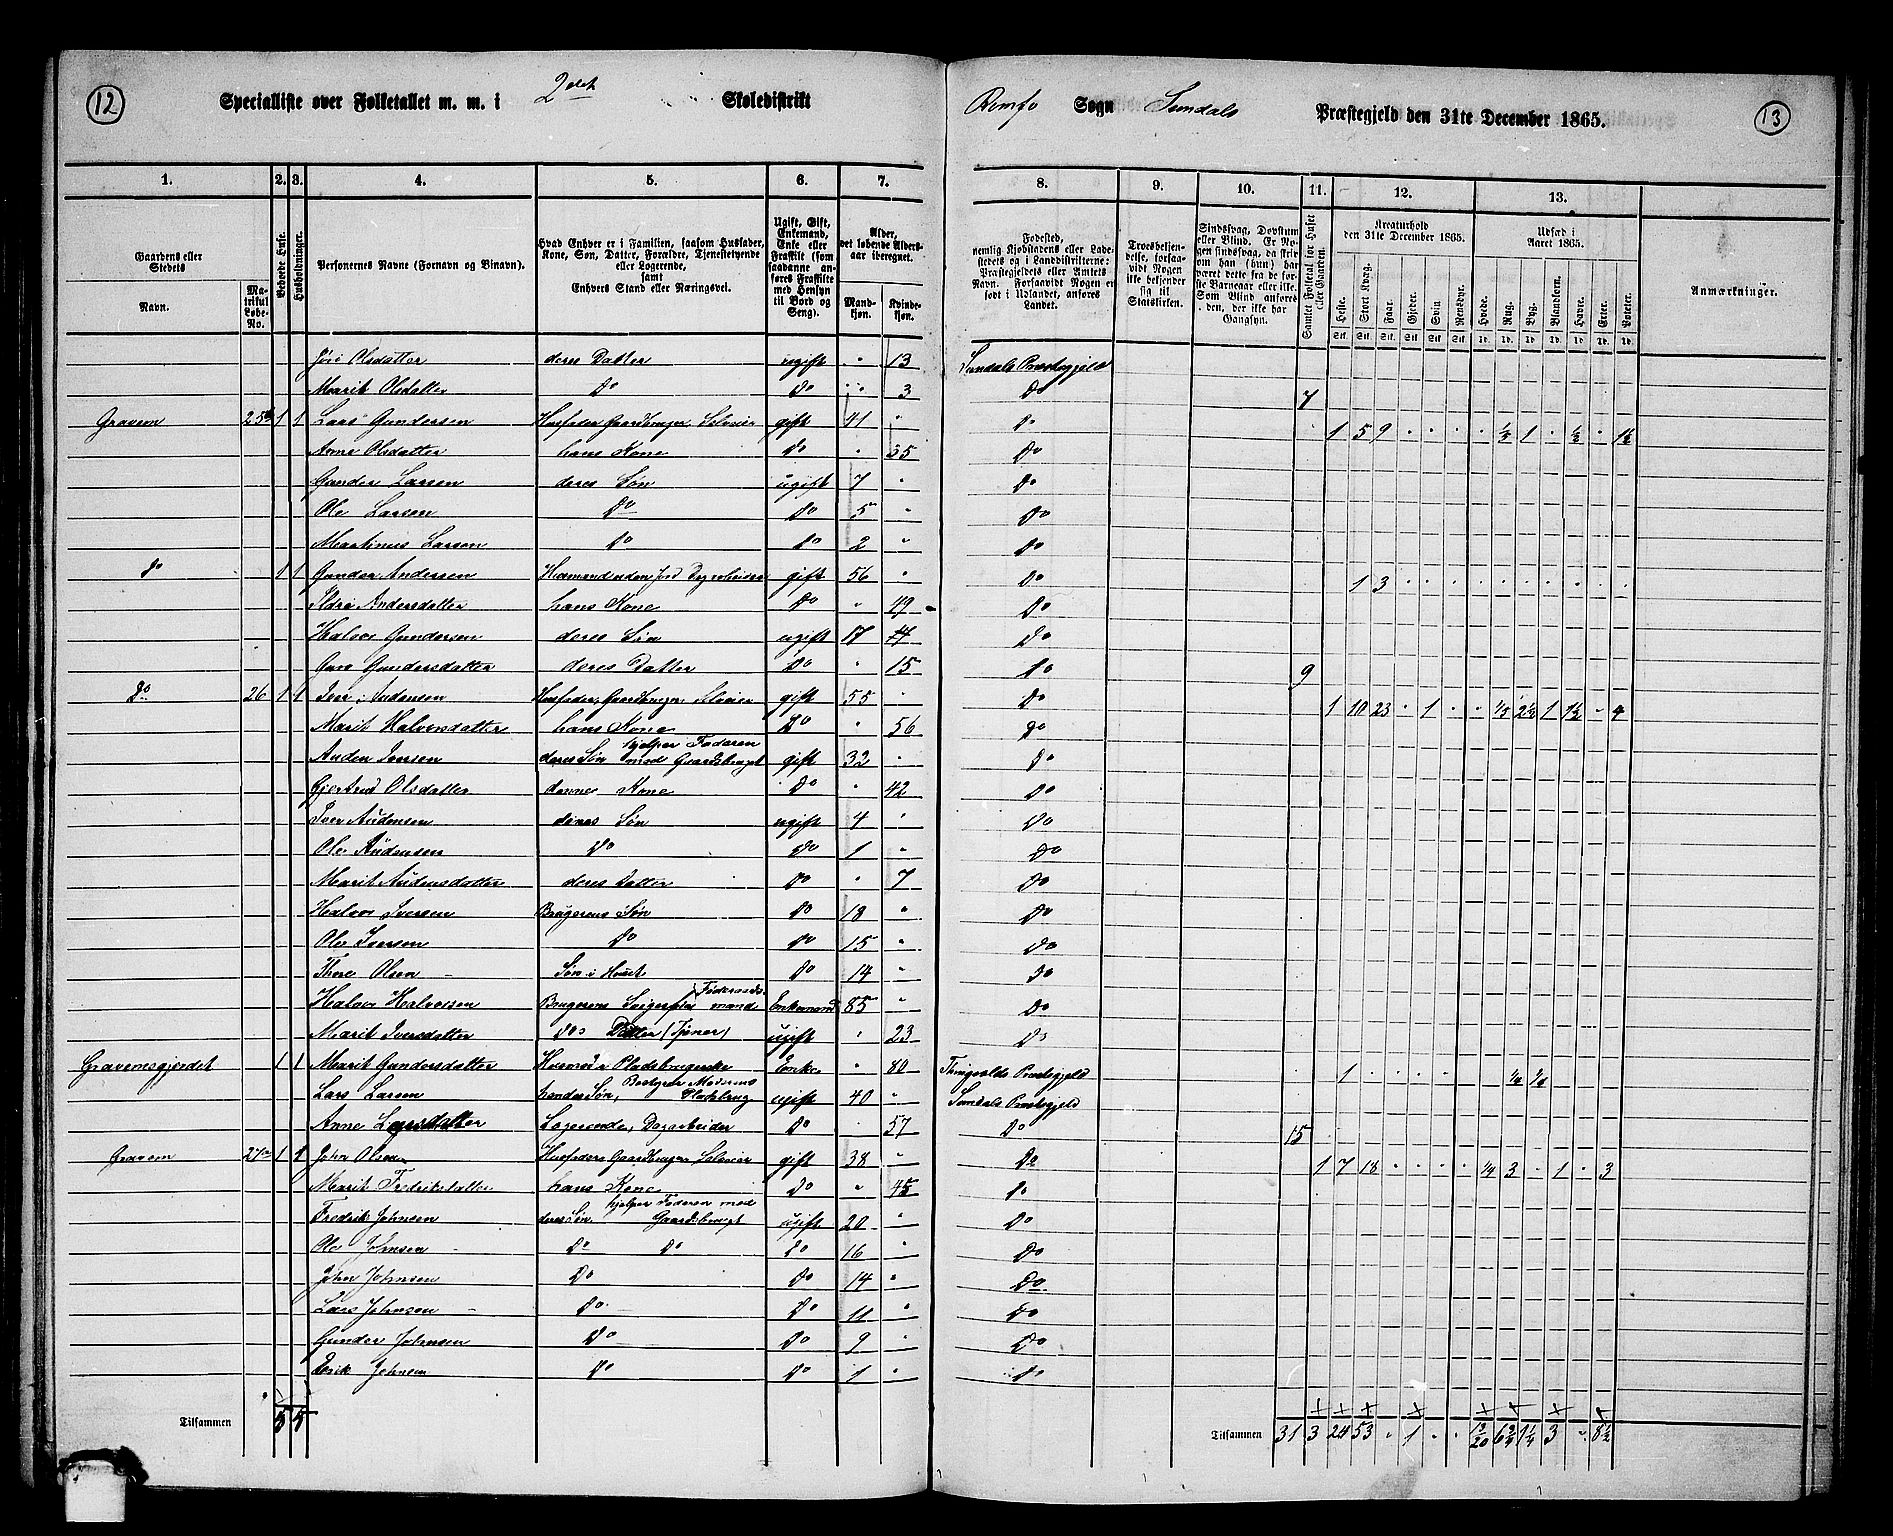 12
Specialliste over Folketallet m. m. i 2det Skoledistrikt
Romfo Sogn Sundals Præstegjeld den 31te December 1865.
13
1. 2. 3. 4. 5. 6. 7. 8. 9. 10. 11. 12. 13.
Gaardens eller Stedets
Navn.
Matrikul Løbe-No.
Beboede Huse.
Husholdninger.
Personernes Navne (Fornavn og Vinavn).
Hvad Enhver er i Familien, saasom Husfader, Kone, Søn, Datter, Forældre, Tjenestetyende eller Logerende, samt Enhvers Stand eller Næringsvei.
Ugift, Gift, Enkemand, Enke eller Fraskilt (som saadanne anføres Fraskilte med Hensyn til Bord og Seng).
Alder, det løbende Alders-aar iberegnet.
Mandkjøn.
Kvindekjøn.
Fødested, nemlig Kjøbstadens eller Ladestedets og i Landdistrikterne: Præstegjeldets eller Amtets Navn. Forsaavidt Nogen er født i Udlandet, anføres Landet.
Troesbekjendelse, forsaavidt Nogen ikke bekjender sig til Statskirken.
Sindssvag, Døvstum eller Blind. Er Nogen sindssvag, da skrives om han (hun) har været dette fra de første Barneaar eller ikke. Som Blind anføres den, der ikke har Gangsyn.
Samlet Folketal for Huset eller Gaarden.
Kreaturhold den 31te December 1865.
Heste. Stort Kvæg. Faar. Gjeder. Svin. Rensdyr.
Udsæd i Aaret 1865.
Hvede. Rug. Byg. Blandkorn. Havre. Erter. Poteter.
Anmærkninger.
Jøri Olsdatter deres Datter ugift " 13 Sundals Præstegjeld
Marit Olsdatter Do Do " 3 Do 7
Gravem 25 1 1 Lars Gundersen Husfader Gaardbruger Selveier gift 41 " Do 1 5 9
Anne Olsdatter hans Kone Do " 35 Do
Gunder Larsen deres Søn ugift 7 " Do
Ole Larsen Do Do 5 " Do
Martinus Larsen Do Do 2 " Do
Do 1 1 Gunder Andersen Husmand uden Jord Dagarbeider gift 56 " Do 1 3
Ildri Andersdatter hans Kone Do " 49 Do
Halvor Gundersen deres Søn ugift 17 Do
Guro Gundersdatter deres Datter Do " 15 Do 9
Do 26 1 1 Iver Audensen Husfader, Gaardbruger Selveier gift 55 " Do 1 10 23 1 2½ 1 1½ 4
Marit Halvorsdatter hans Kone Do " 56 Do
Auden Iversen deres Søn hjelper Faderen med Gaardsbruget gift 32 " Do
Gjertrud Olsdatter dennes Kone Do " 42 Do
Iver Audensen deres Søn ugift 4 " Do
Ole Audensen Do Do 1 " Do
Marit Audensdatter deres Datter Do " 7 Do
Halvor Iversen Brugerens Søn Do 18 " Do
Ole Iversen Do Do 15 " Do
Thore Olsen Søn i Huset Do 14 " Do
Halvor Halvorsen Brugerens Svigerfader Føderaadsmand Enkemand 85 " Do
Marit Iversdatter Do Datter (Tjener) ugift " 23 Do
Gravemsgjerdet 1 1 Marit Gundersdatter Husmed i Pladsbrugerske Enke " 80 Thingvolds Præstegjeld 1 ¼
Lars Larsen hendes Søn, Bestyrer Moderens Pladsbrug ugift 40 " Sundals Præstegjeld
Anne Larsdatter Logerende, Dagarbeider Do " 57 Do 15
Gravem 27a 1 1 John Olsen Husfader Gaardbruger Selveier gift 38 " Do 1 7 18 ¼ 3 1 3
Marit Fredriksdatter hans Kone Do " 45 Do
Fredrik Johnsen deres Søn hjelper Faderen med Gaardsbruget ugift 20 " Do
Ole Johnsen Do Do Do 16 " Do
John Johnsen Do Do 14 " Do
Lars Johnsen Do Do 11 " Do
Gunder Johnsen Do Do 9 " Do
Erik Johnsen Do Do 1 " Do
Tilsammen 5 5
Tilsammen 31 3 24 53 " 1 " " 6¾ 1¼ 3 " 8½